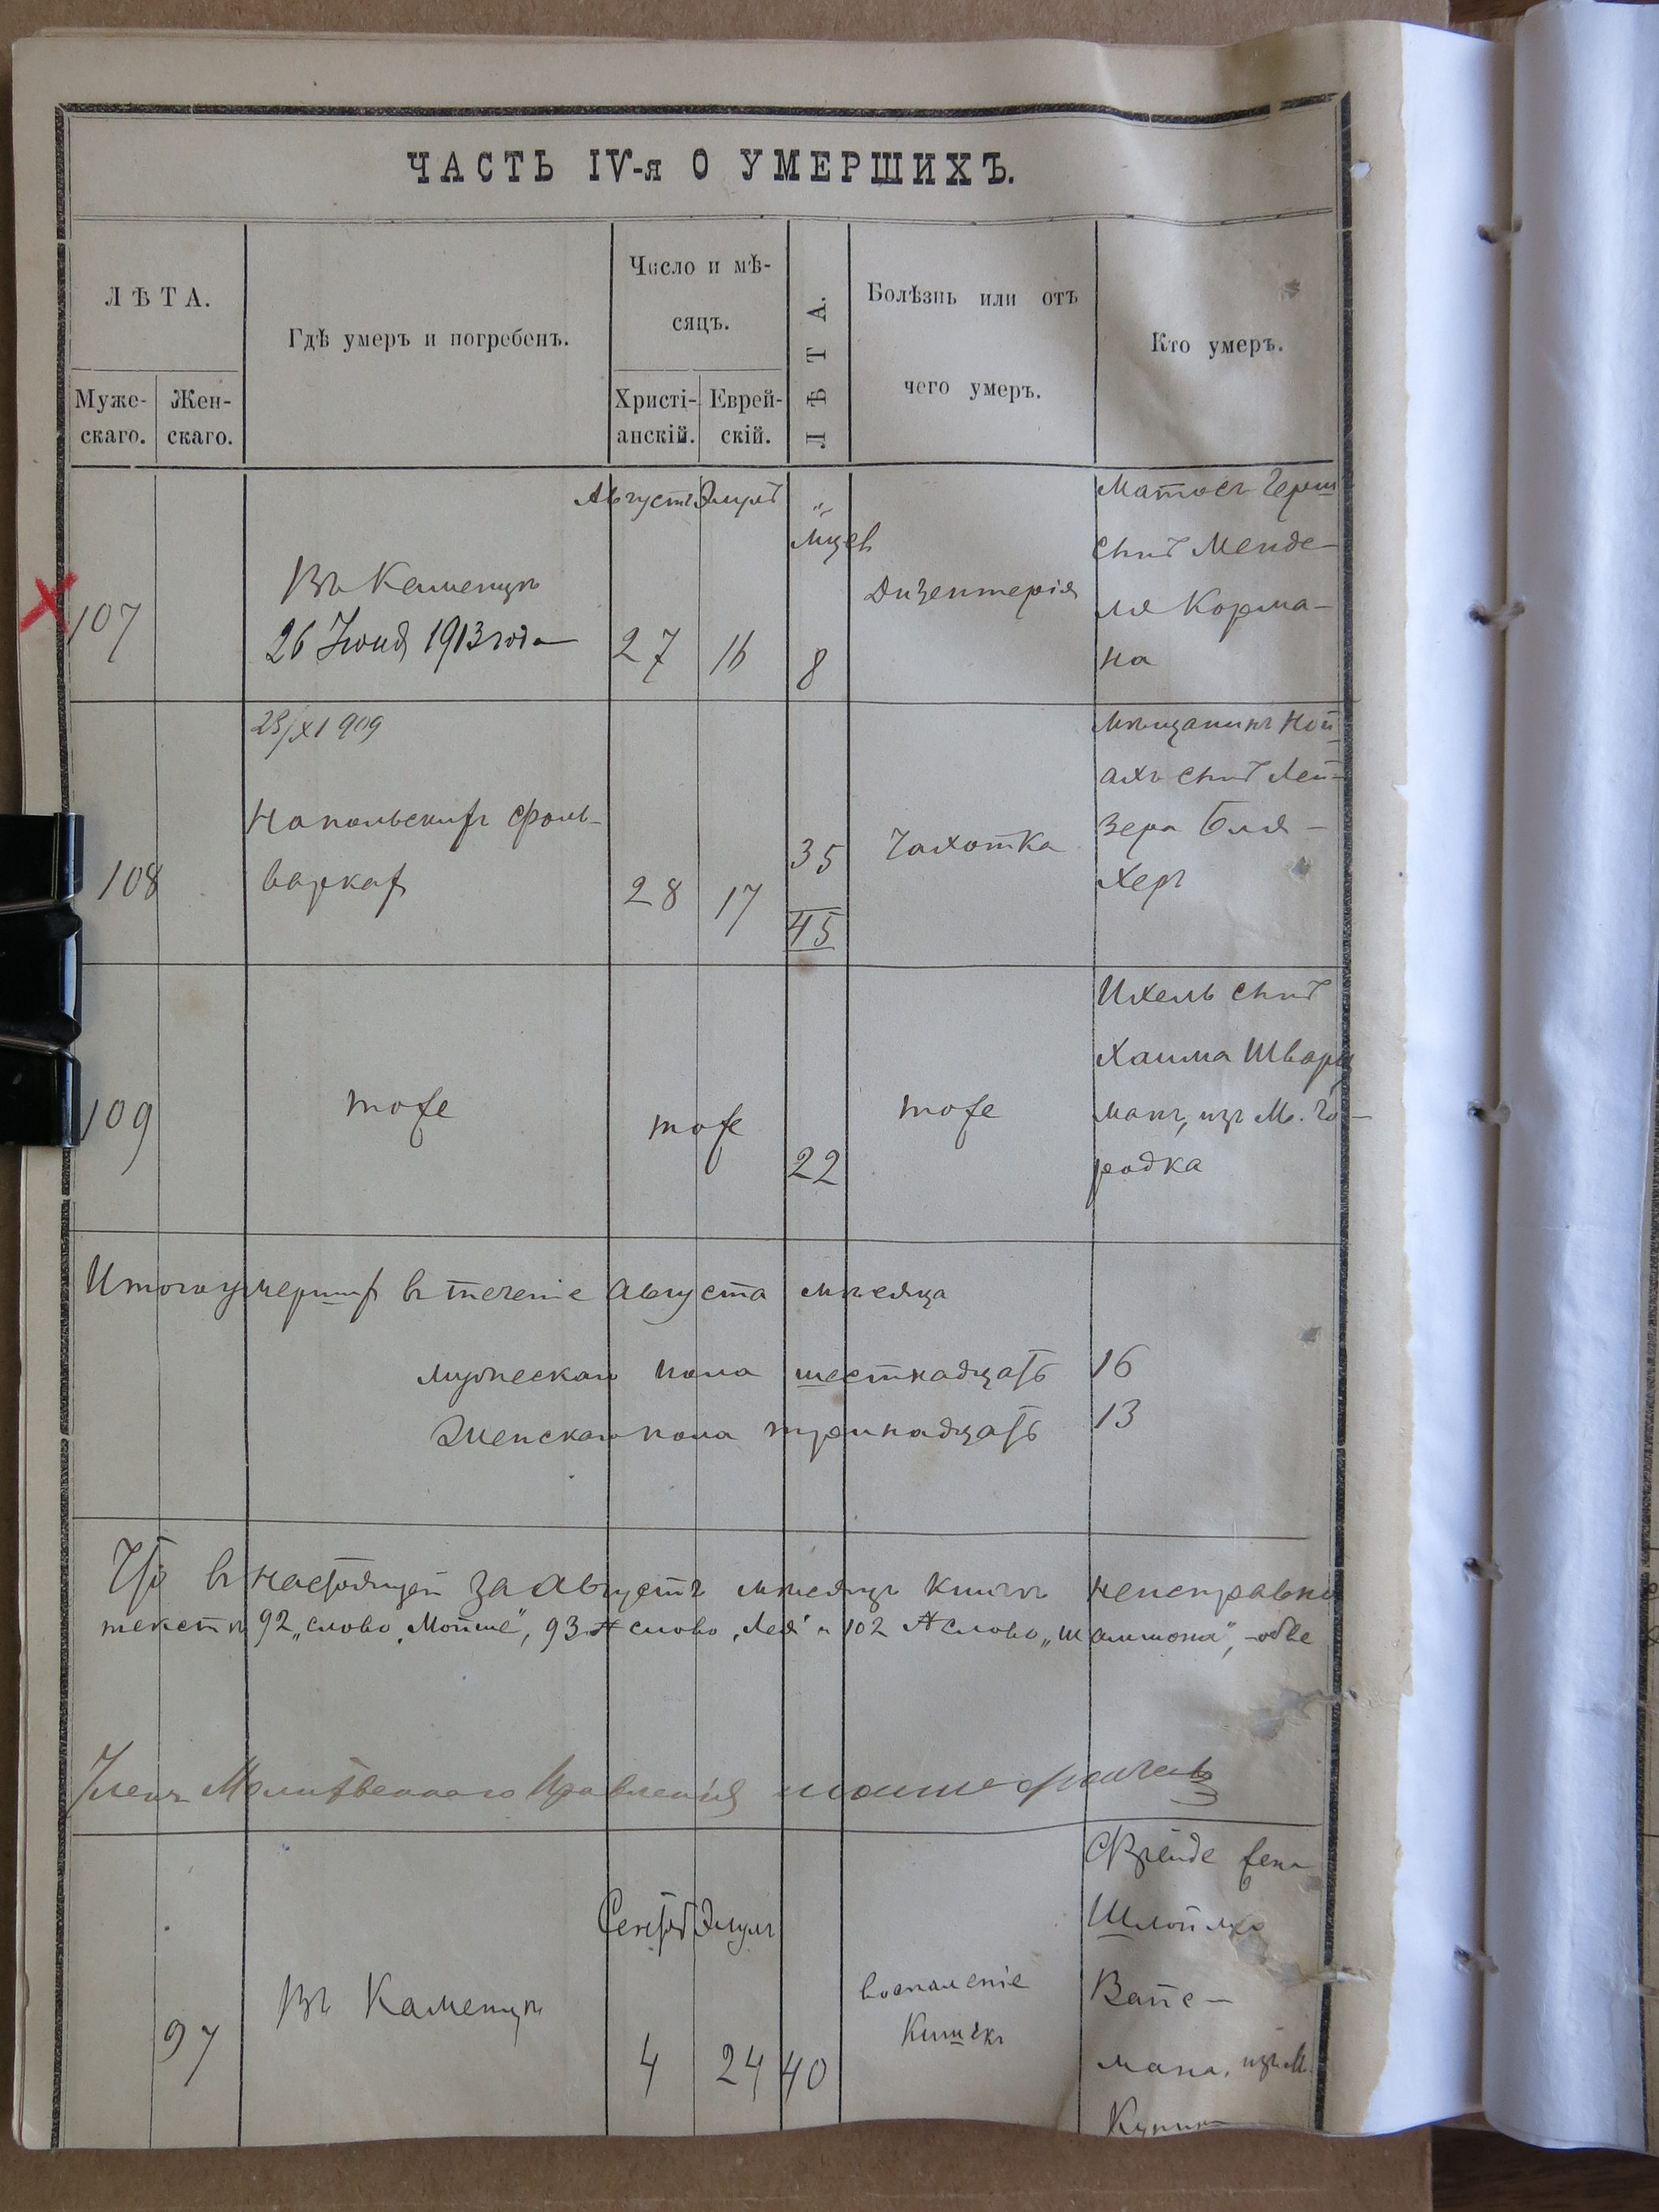 ЧАСТЬ IV-я О УМЕРШИХЪ.
ЛѢТА.
Муже-
скаго.
Жен-
скаго.
Гдѣ умеръ и погребенъ.
Число и мѣ-
сяцъ.
Христі-
анскій.
Еврей-
скій.
ЛѢТА.
Болѣзнь или отъ
чего умеръ.
Кто умеръ.
107
Въ Каменцѣ
26 Іюня 1913 года
Августъ
27
Элулъ
16
Мцев
8
Дизентерія
Матосъ Герш
сынъ Менде-
ля Корма-
на
23/XI 909
108
Напольскихъ Фоль-
варках
28
17
35
45
Чахотка
Мѣщанинъ Ной-
ахъ сынъ Лей-
зера Бля-
херъ
109
тоже
тоже
22
тоже
Ихель сынъ
Хаима Шварц
манъ, изъ М. Го-
родка
Итого умерших въ теченіе Августа мѣсяца
мужескаго пола шестнадцать 16
Женскаго пола тринадцать 13
Что въ настоящей за Августъ мѣсяцъ книгѣ неисправно
текстъ 92 „слово „Мойше", 93 № слово „Лея" и 102 № слово „Шлимона",
Членъ Молитвеннаго Правленія
97
Въ Каменцѣ
Сентяб
4
Элулъ
24
40
воспаленіе
Кишекъ
жена
Шлойма
Вайс-
мана, изъ М.